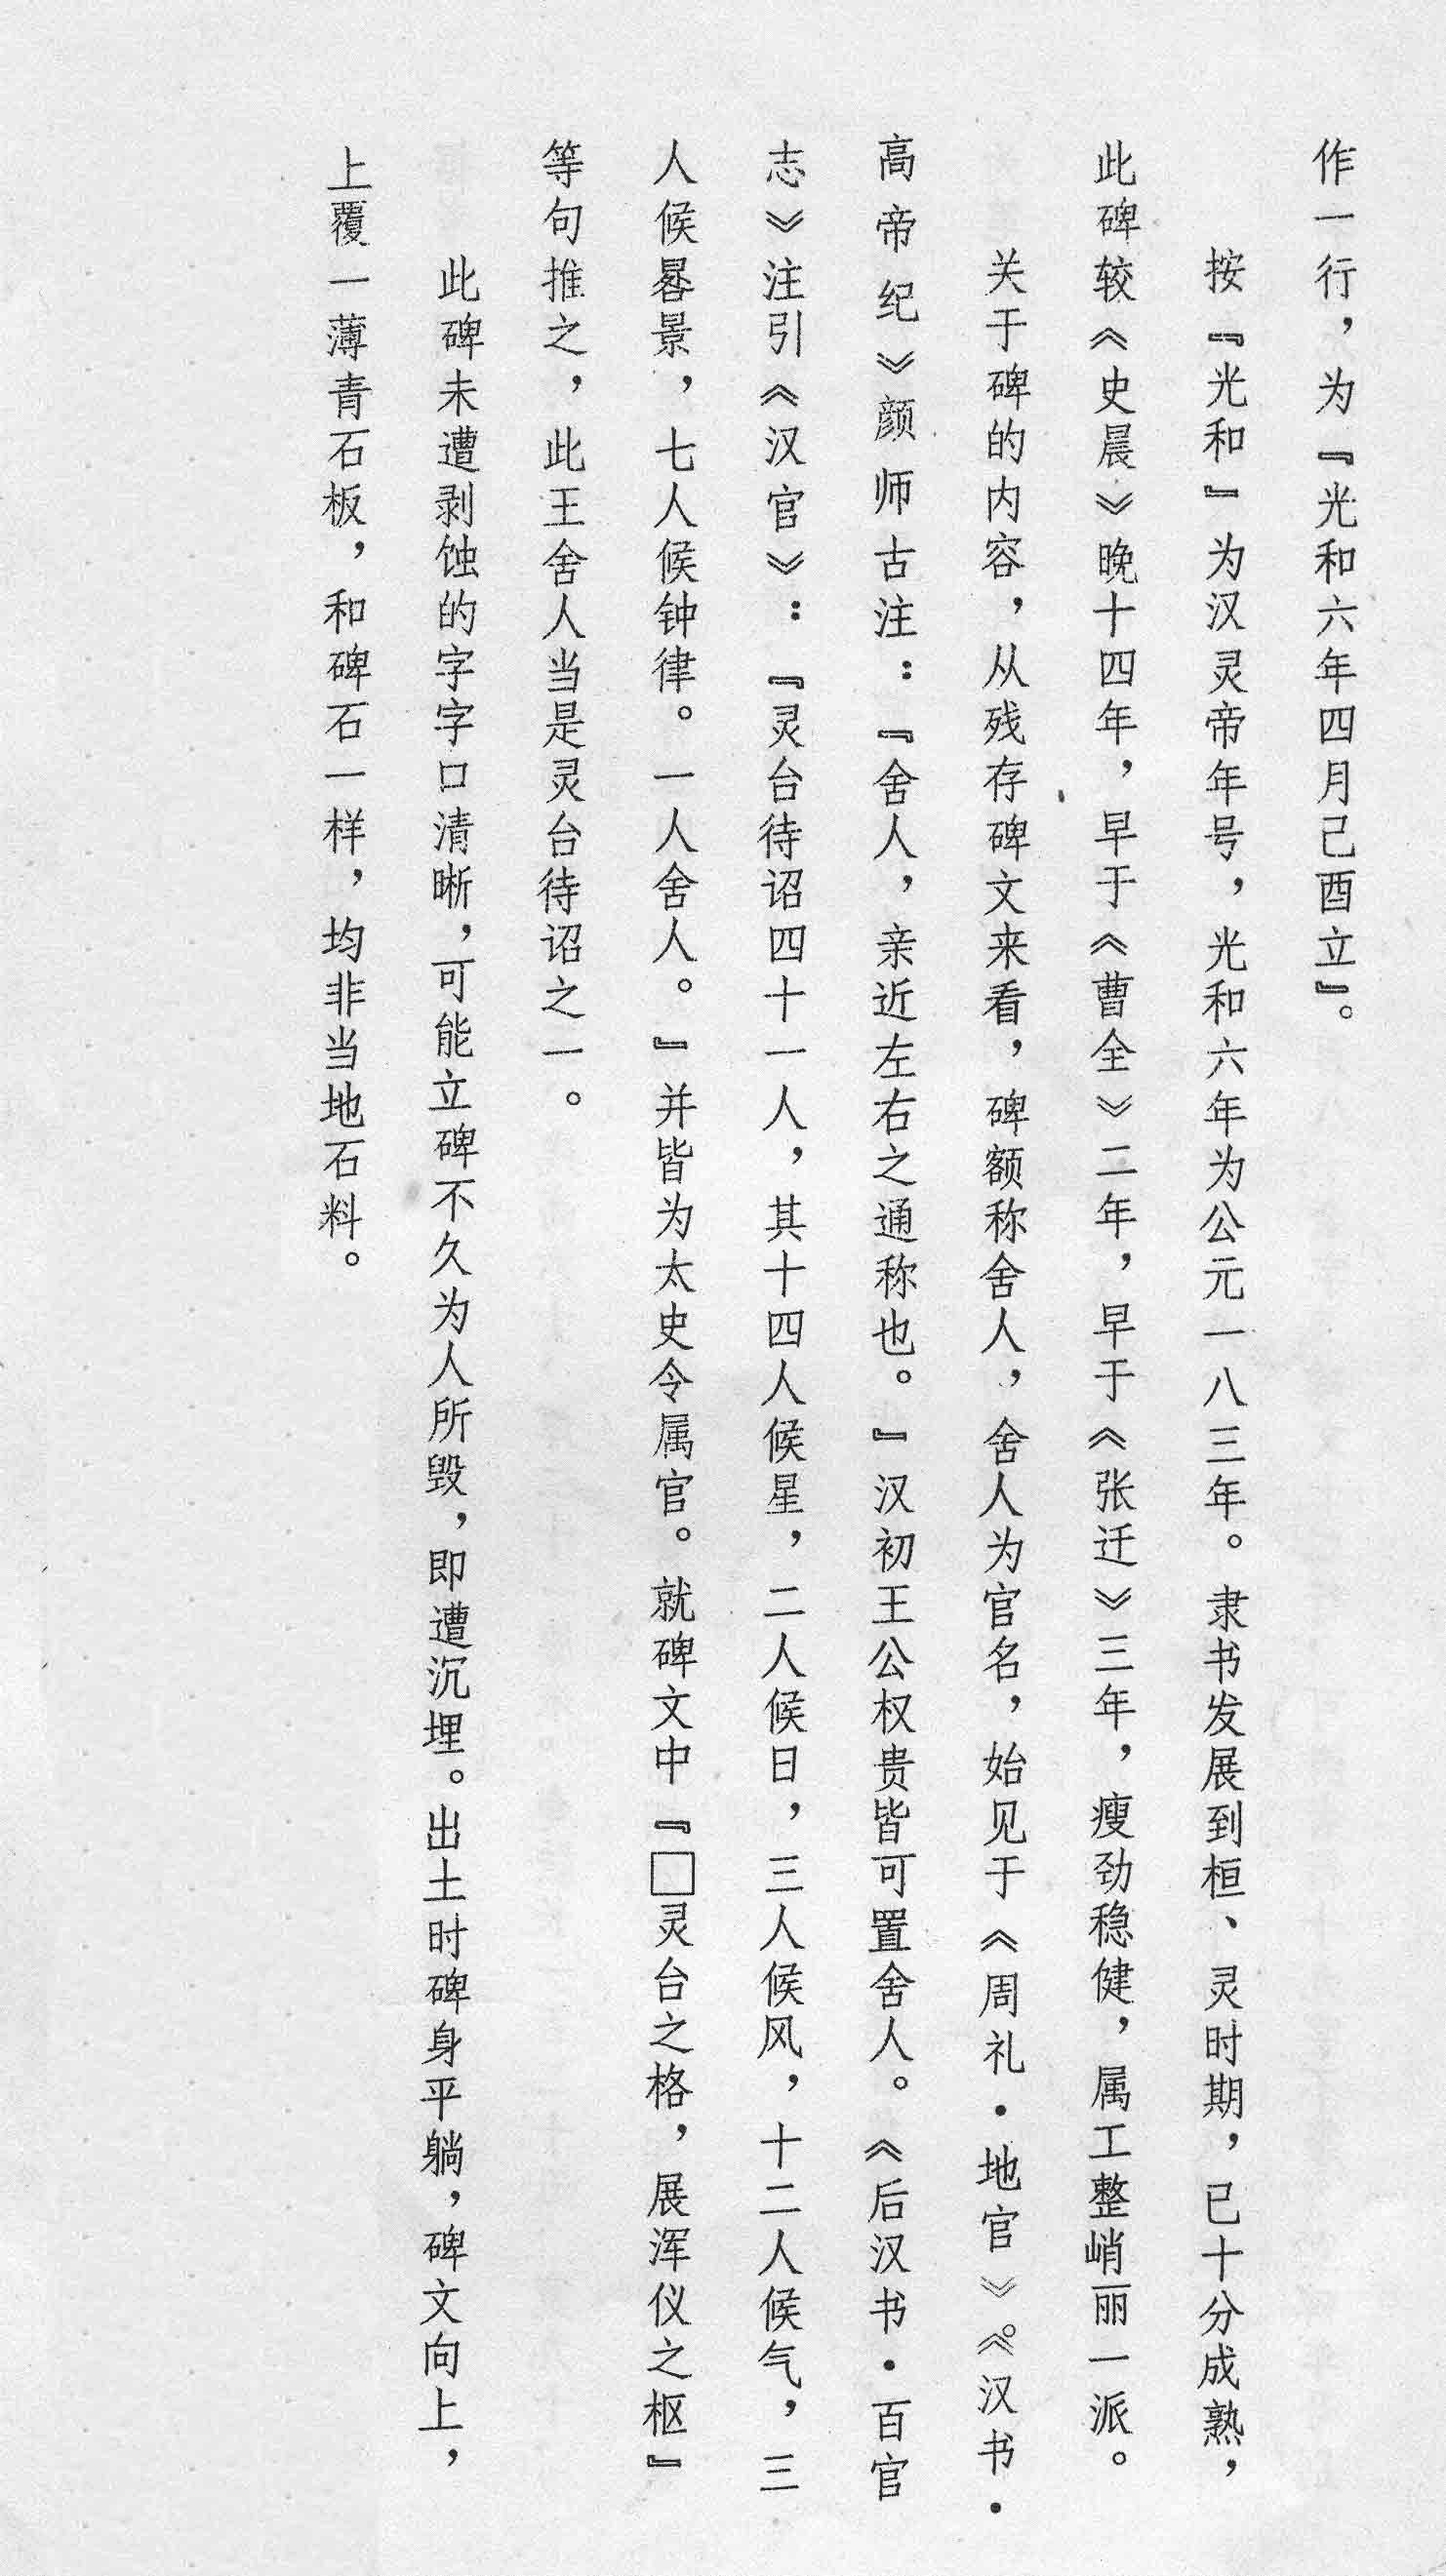 作一行，为『光和六年四月己酉立』。
按『光和』为汉灵帝年号，光和六年为公元一八三年。隶书发展到桓、灵时期，已十分成熟，
此碑较《史晨》晚十四年，早于《曹全》二年，早于《张迁》三年，瘦劲稳健，属工整峭丽一派。
关于碑的内容，从残存碑文来看，碑额称舍人，舍人为官名，始见于《周礼·地官》。《汉书·
高帝纪》颜师古注：『舍人，亲近左右之通称也。』汉初王公权贵皆可置舍人。《后汉书·百官
志》注引《汉官》：『灵台待诏四十一人，其十四人候星，二人候日，三人候风，十二人候气，三
人候晷景，七人候钟律。一人舍人。』并皆为太史令属官。就碑文中『□灵台之格，展浑仪之枢』
等句推之，此王舍人当是灵台待诏之一。
此碑未遭剥蚀的字字口清晰，可能立碑不久为人所毁，即遭沉埋。出土时碑身平躺，碑文向上，
上覆一薄青石板，和碑石一样，均非当地石料。